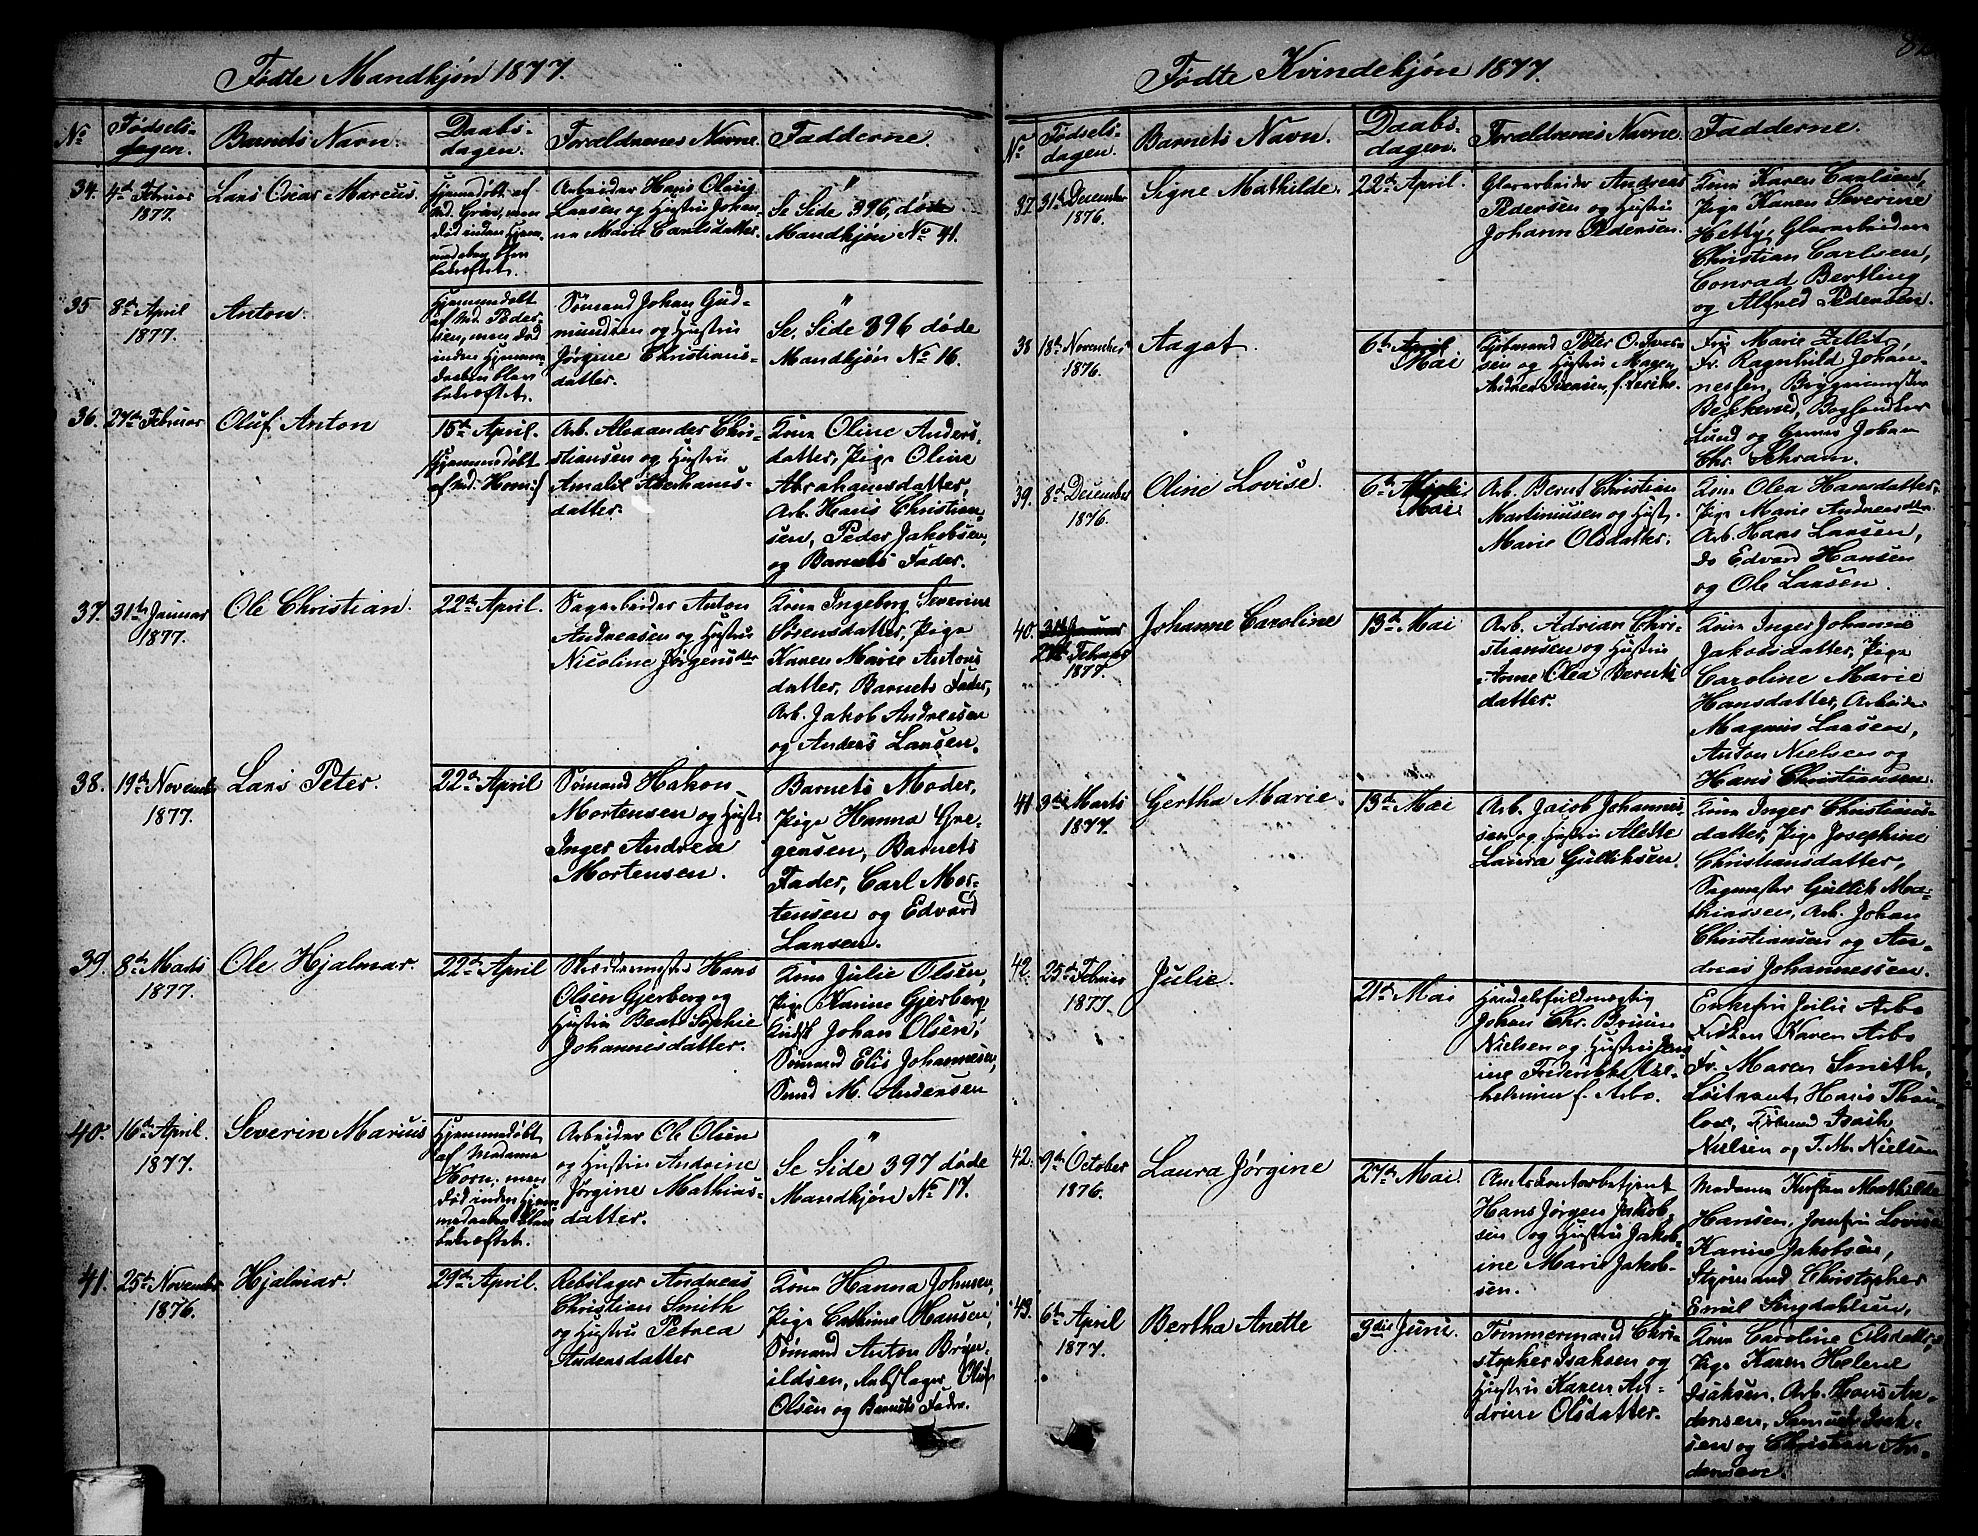 Fødte Mandkjøn 1877.
No
Fødsels-
dagen.
Barnets Navn.
Daabs-
dagen.
Forældrenes Navne.
Fadderne.
34.
4de Februar
1877.
Lars Oscar Marcus.
Hjemmedøbt af
død inden Hjem-
medaaben blev
bekræftet.
Arbeider Hans Olaus
Larsen og Hustru Johan-
ne Marie Carlsdatter.
"
Se Side 396, døde
Mandkjøn No 41.
35
8de April
1877.
Anton.
Hjemmedøbt
af Md. Peder-
sen, men død
inden Hjemme-
daaben blev
bekræftet.
Sømand Johan Gud-
mundsen og Hustru
Jørgine Christians-
datter.
"
Se, Side 396 døde
Mandkjøn No 16.
36.
27de Februar
Oluf Anton
15de April.
Hjemmedøbt
af Md. Horn.
Arb. Alexander Chri-
stiansen og Hustru
Amalie Abrahams-
datter.
Kone Oline Anders-
datter, Pige Oline
Abrahamsdatter,
Arb. Hans Christian-
sen, Peder Jakobsen,
og Barnets Fader.
37.
31te Januar
1877.
Ole Christian.
22de April.
Sagarbeider Anton
Andreasen og Hustru
Nicoline Jørgensdtr
Kone Ingeborg Severine
Sørensdatter, Pige
Karen Marie Antons
datter, Barnets Fader,
Arb. Jakob Andreasen
og Anders Larsen.
38.
19de Novemb.
1877.
Lars Peter.
22de April
Sømand Hakon
Mortensen og Hust.
Inger Andrea
Mortensen.
Barnets Moder,
Pige Hanna Gre-
gersen, Barnets
Fader, Carl Mor-
tensen og Edvard
Larsen.
39.
8de Marts
1877.
Ole Hjalmar.
22de April
Skræddermester Hans
Olsen Gjerberg og
Hustru Beate Sophie
Johannesdatter.
Kone Julie Olsen,
Pige Karine Gjerberg
Johan Olsen,
Sømand Elis Johannesen,
M. Andersen
40.
16de April.
1877.
Severin Marius
Hjemmedøbt
af Madame
Horn, men
død inden Hjem-
medaaben blev
bekræftet.
Arbeider Ole Olsen
og Hustru Andrine
Jørgine Mathias-
datter.
"
Se Side 397 døde
Mandkjøn No 17.
41.
25de November
1876.
Hjalmar.
29de April.
Rebslager Andreas
Christian Smith
og Hustru Petrea
Andersdatter
Kone Hanna Johnsen,
Pige Cathrine Hansen,
Sømand Anton Bryn-
ildsen, Rebslager Oluf
Olsen og Barnets Fader.
Fødte Kvindekjøn 1877.
No
Fødsels-
dagen.
Barnets Navn.
Daabs-
dagen.
Forældrenes Navne.
Fadderne.
37
31te December
1876.
Signe Mathilde.
22de April.
Glasarbeider Andreas
Pedersen og Hustru
Johanne Pedersen.
Kone Karen Carlsen,
Pige Karen Severine
Hetty, Glasarbeidere
Christian Carlsen,
Conrad Bertling
og Alfred Pedersen.
38
18de November
1876.
Aagot.
6te April
Mai
Kjøbmand Peter O. Iver-
sen og Hustru Maren
Fru Marie Zetlitz,
Fr. Ragnhild Johan-
nessen, Bryggemester
Boghandler
Lund og Johan
Chr. Schram.
39.
8de December
1876.
Oline Lovise.
6te
Mai
Arb. Bernt Christian
Martiniusen og Hust.
Marie Olsdatter.
Kone Olea Hansdatter,
Pige Marie Andreasdtr.
Arb. Hans Larsen,
do Edvard Hansen
og Ole Larsen.
40.
31te Januar
27de Februar
1877.
Johanne Caroline
13de Mai
Arb. Adrian Chri-
stiansen og Hustru
Anne Olea Bernts-
datter.
Kone Inger Johanne
Jakobsdatter, Pige
Caroline Marie
Hansdatter, Arbeider
Magnus Larsen,
Anton Nielsen og
Hans Christiansen.
41
3die Marts
1877.
Gertha Marie.
13de Mai
Arb. Jacob Johannes-
sen og Hustru Alette
Laura Gulliksen.
Kone Inger Christians-
datter, Pige Josephine
Christiansdatter,
Sagmester Gullik Ma-
thiassen, Arb. Johan
Christiansen og An-
dreas Johannessen.
42.
25de Februar
1877.
Julie.
21de Mai
Handelsfuldmægtig
Johan Chr. Bruun
Nielsen og Hustru Jens
ine Frederikke Vil-
helmine f. Arbo.
Enkefru Julie Arbo
Frøken Karen Arbo
Fr. Maren Smith,
Løitnant Hans Thau-
low, Isach
Nielsen og T. M. Nielsen
42.
9de October
1876.
Laura Jørgine
27de Mai.
Amtskontorbetjent
Hans Jørgen Jakob-
sen og Hustru Jakob-
ine Marie Jakob-
sen.
Madame Kirsten Mathilde
Hansen, Jomfru Lovise
Karine Jakobsen,
Styrmand Christopher
Emil Syngdahlsen,
43.
6te April
1877.
Bertha Anette
3die Juni.
Tømmermand Chri-
stopher Isaksen og
Hustru Karen An-
drine Olsdatter.
Kone Caroline Olsdatter,
Pige Karen Helene
Isaksen, Arb. Hans An-
dersen, Samuel Isak-
sen og Christian An-
dersen.